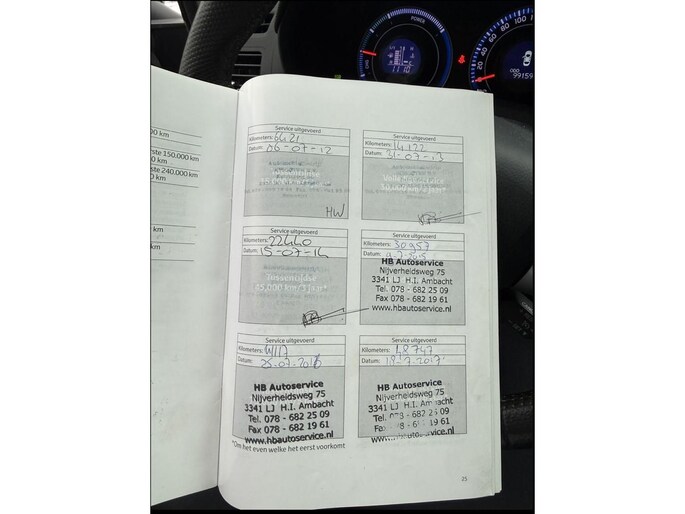 POWER
CHG
11.10
0 20 40 60 80 100 1
ODO
99159
00 km
km
rste 150.000
0 km
rste 240.000
0 km
km
km
Service uitgevoerd
Kilometers: 6421
Datum: 06-07-12
HW
Service uitgevoerd
Kilometers: 14122
Datum: 31-07-13
Service uitgevoerd
Kilometers: 22440
Datum: 15-07-14
Tussentijdse
45.000 km/3 jaar*
Service uitgevoerd
Kilometers: 30957
Datum: 9-7-2015
HB Autoservice
Nijverheidsweg 75
3341 LJ H.I. Ambacht
Tel. 078 - 682 25 09
Fax 078 - 682 19 61
www.hbautoservice.nl
Service uitgevoerd
Kilometers:
Datum: 25-07-2016
HB Autoservice
Nijverheidsweg 75
3341 LJ H.I. Ambacht
Tel. 078 - 682 25 09
Fax 078 - 682 19 61
www.hbautoservice.nl
Service uitgevoerd
Kilometers: 48747
Datum: 18-7-2017
HB Autoservice
Nijverheidsweg 75
3341 LJ H.I. Ambacht
Tel. 078 - 682 25 09
Fax 078 - 682 19 61
www.hbautoservice.nl
*Om het even welke het eerst voorkomt
25